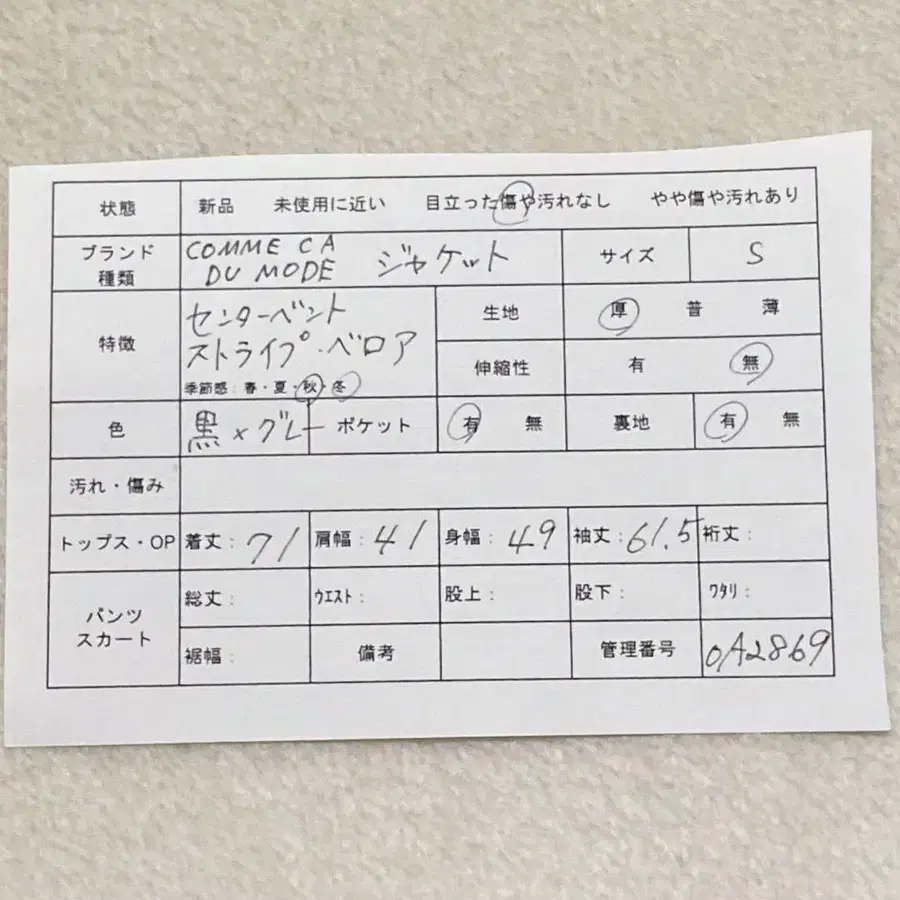 状態 新品 未使用に近い 目立った傷や汚れなし やや傷や汚れあり
ブランド 種類 COMME CA DU MODE ジャケット サイズ S
特徴 センターベント ストライプ・ベロア
季節感:春・夏・秋・冬
生地 厚 普 薄
伸縮性 有 無
色 黒×グレー ポケット 有 無 裏地 有 無
汚れ・傷み
トップス・OP 着丈:71 肩幅:41 身幅:49 袖丈:61.5 裄丈:
パンツ スカート 総丈: ウエスト: 股上: 股下: ワタリ:
裾幅: 備考 管理番号 0A2869